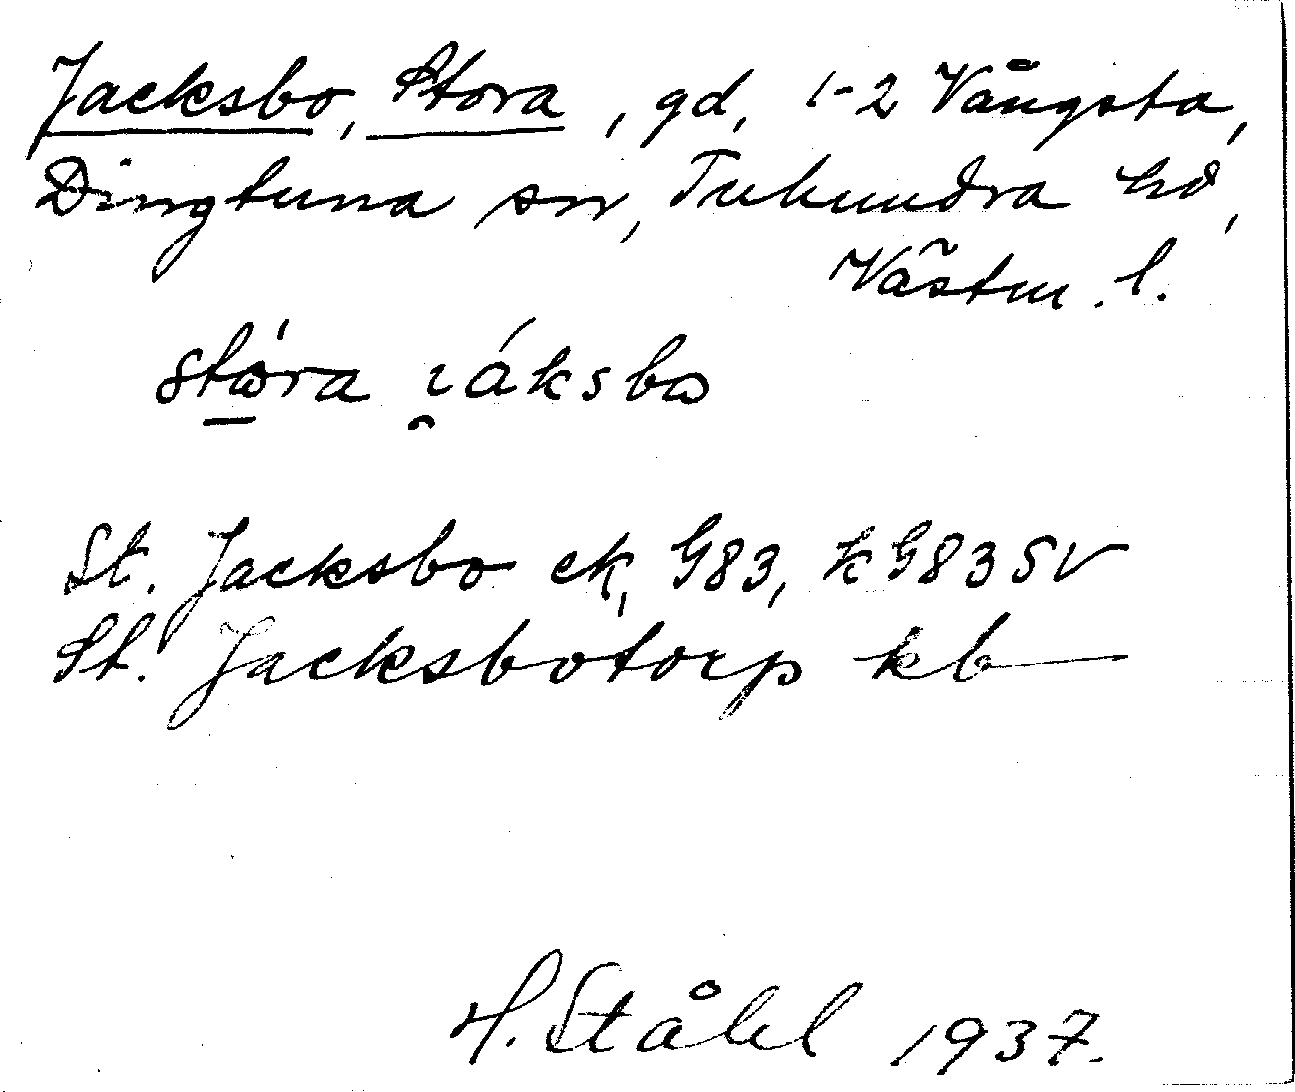 Jacksbo, Stora, gd, 1-2 Vångsta,
Dingtuna sn, Tuhundra hd,
Västm. l.
stώ̲ra i̯áksbω
St. Jacksbo ek, G83, k G83 SV
St. Jacksbotorp kb
H. Ståhl 1937.